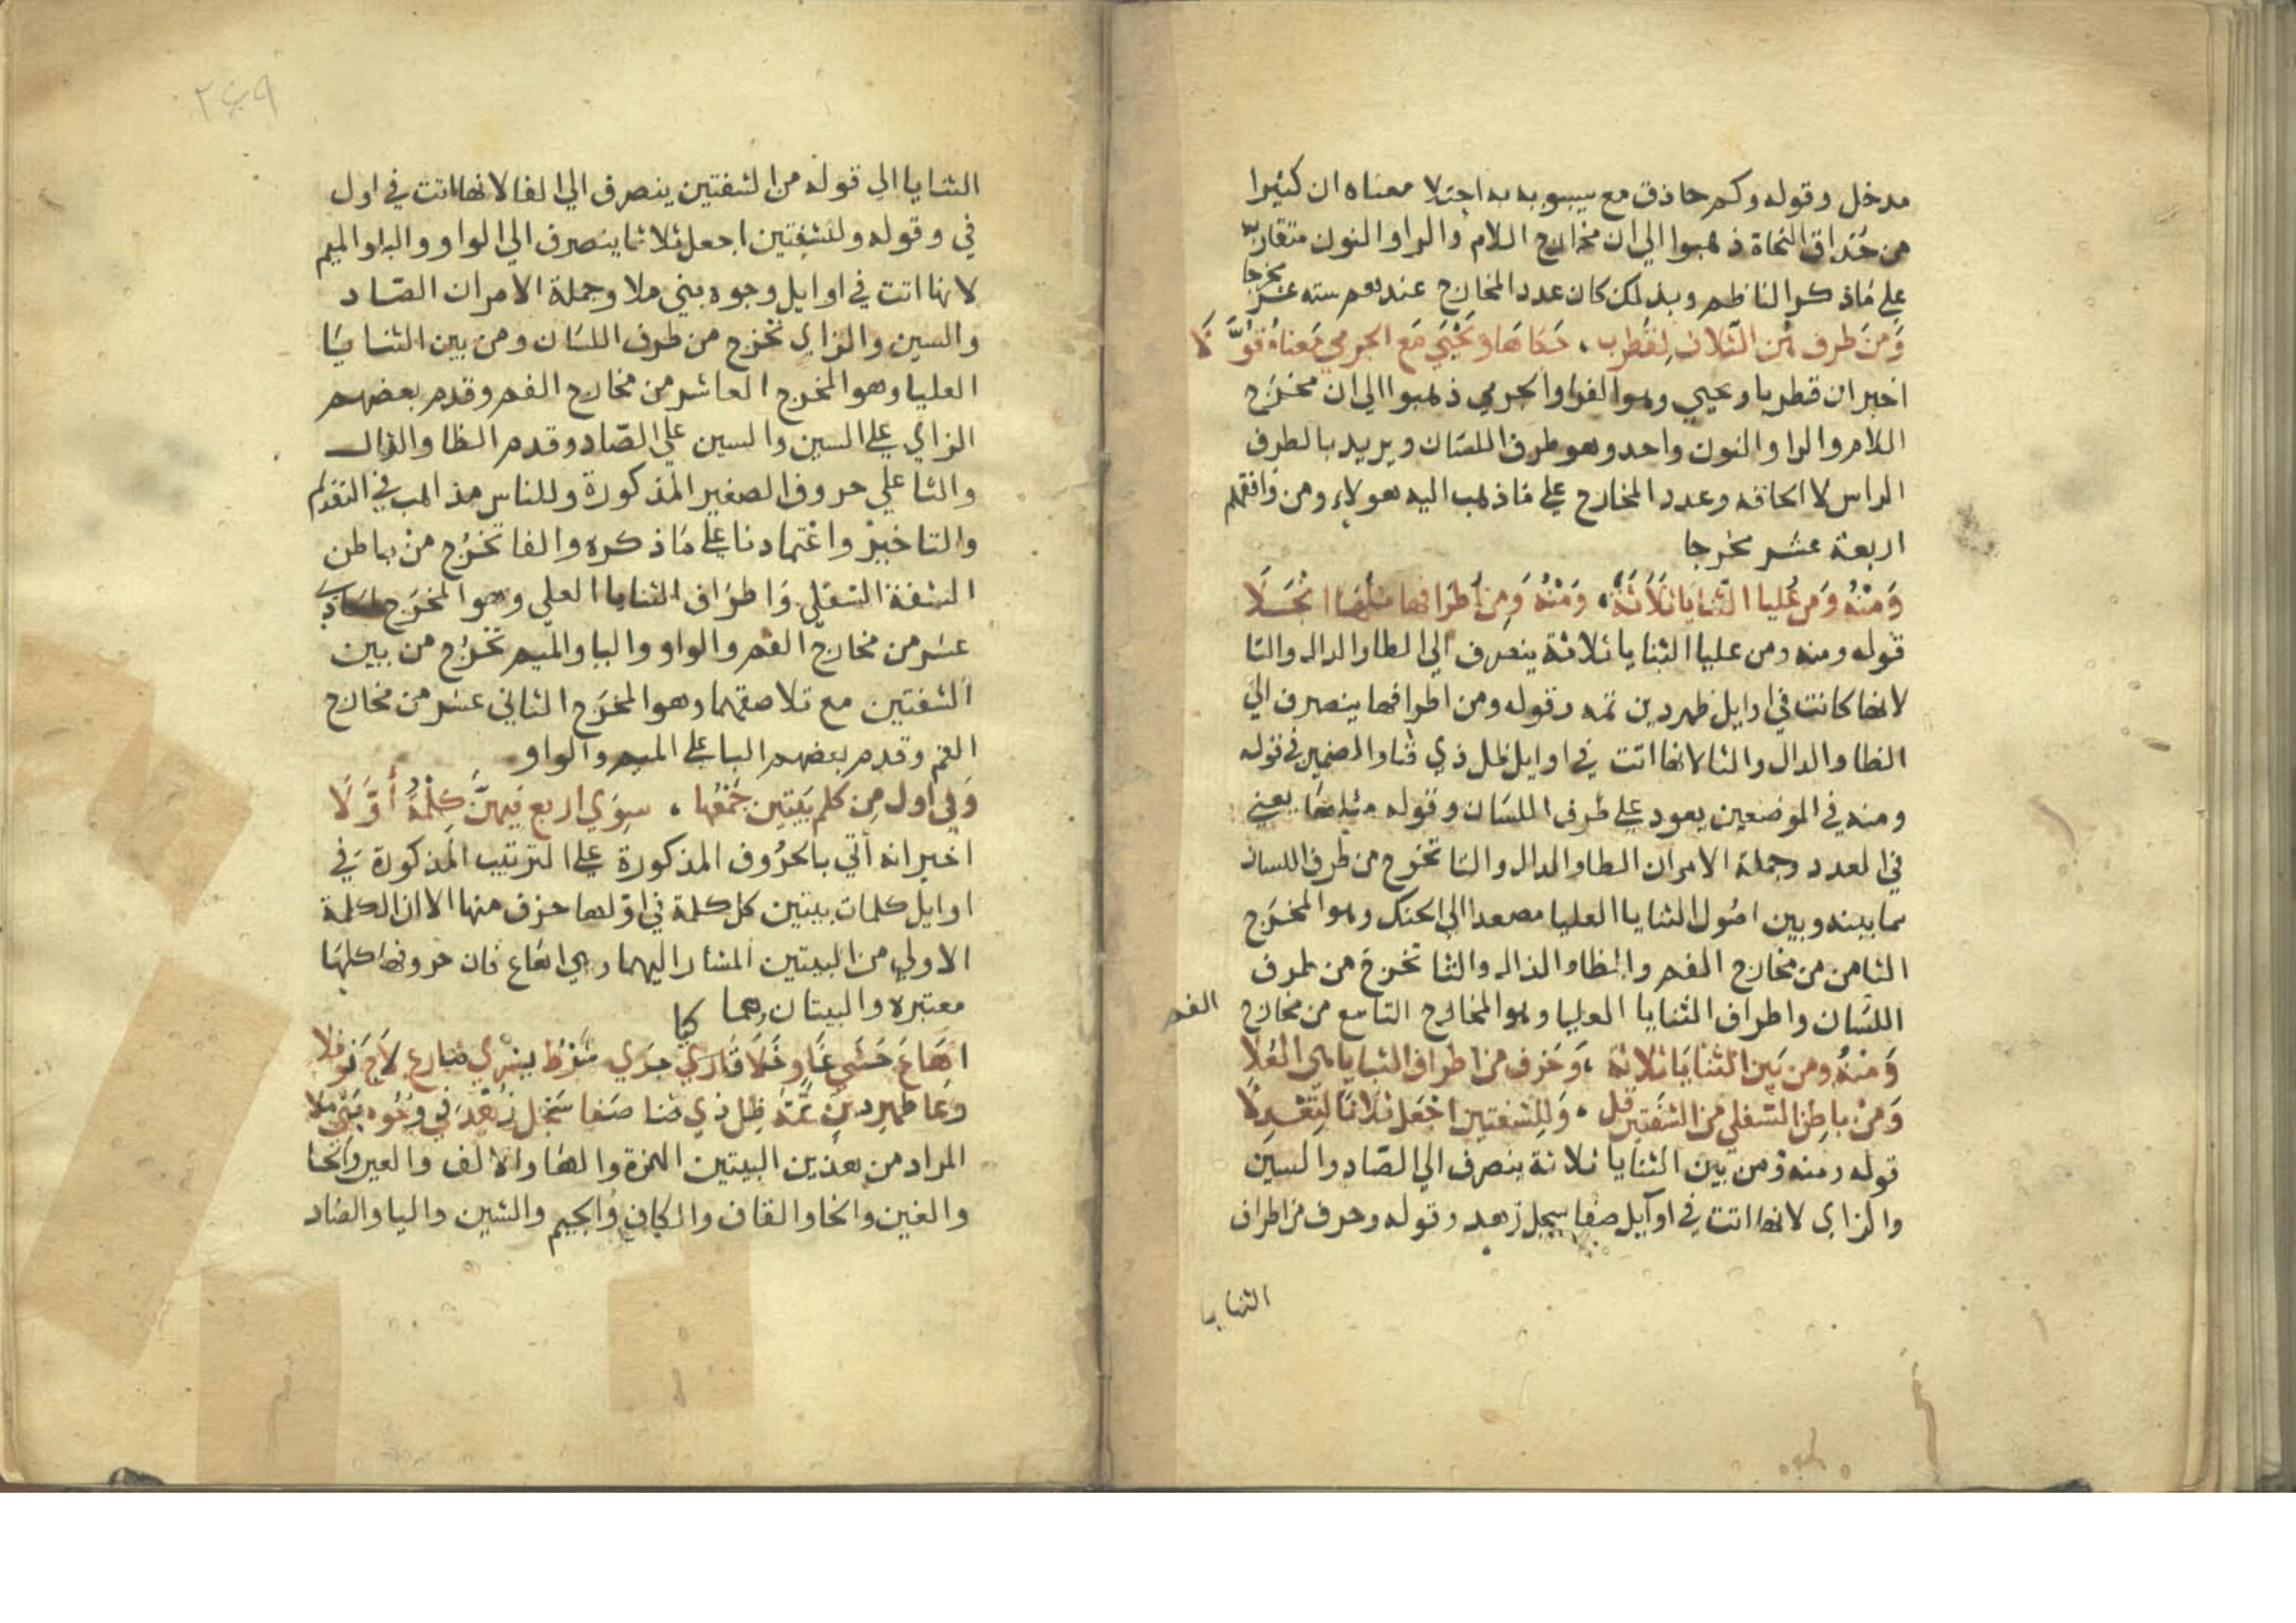 مدخل وقوله وكم حاذق مع سيبويه به اجتلا معناه ان كثيرا
من حذاق النحاة ذهبوا الي ان مخارج اللام والرا والنون متقاربة
علي ماذكر الناظم وبذلك كان عدد المخارج عندهم ستة عشر مخرجا
وَمن طرف هُن الثلاث لِقُطرب ، حَفاها وَيَحْيَي مَع الجرمي مَعناهُ قُوِّلَا
اخبر ان قطربا ويحيي وهو الفرا والجرمي ذهبوا الي ان مخرج
اللام والرا والنون واحد وهو طرف اللسان ويريد بالطرف
الراس لا الحافه وعدد المخارج علي ماذهب اليه هولاء ومن وافقهم
اربعة عشر مخرجا
وَمنْهُ وَمن عُليا الثنايا ثَلَاثَةٌ ، وَمنْهُ وَمِن أطرافها مثلها انْجَلَا
قوله ومنه ومن عليا الثنايا ثلاثة ينصرف الي الطا والدال والتا
لانها كانت في اوايل طهر دين تمه وقوله ومن اطرافها ينصرف الي
الظا والدال والثا لانها اتت في اوايل ظل ذي ثنا والضمير في قوله
ومنه في الموضعين يعود علي طرف اللسان وقوله مثلها يعني
في العدد وجملة الامر ان الطا والدال والتا تخرج من طرف اللسان
مما بينه وبين اصول الثنايا العليا مصعدا الي الحنك وهو المخرج
الثامن من مخارج الفم والظا والذال والثا تخرج من طرف
اللسان واطراف الثنايا العليا وهو المخارج التاسع من مخارج الفم
وَمنْهُ ومن بَين الثنايا ثلاثة ، وَحَرف من اطراف الثنايا هي العُلا
وَمنْ باطِن السفلي من الشفتين قل ، وَلِلشفتين اجْعَل ثلاثا لِتَعْدِلَا
قوله ومنه ومن بين الثنايا ثلاثة ينصرف الي الصاد والسين
والزاي لانها اتت في اوايل صفا سجل زهد وقوله وحرف من اطراف
الثنايا
٢٤٩
الثنايا الي قوله من الشفتين ينصرف الي الفا لانها اتت في اول
في وقوله وللشفتين اجعل ثلاثا ينصرف الي الواو والبا والميم
لانها اتت في اوايل وجوه بني ملا وجملة الامر ان الصاد
والسين والزاي تخرج من طرف اللسان ومن بين الثنايا
العليا وهو المخرج العاشر من مخارج الفم وقدم بعضهم
الزاي علي السين والسين علي الصاد وقدم الظا والذال
والثا علي حروف الصفير المذكورة وللناس مذاهب في التقديم
والتاخير واعتمادنا علي ماذكره والفا تخرج من باطن
الشفة السفلي واطراف الثنايا العلي وهو المخرج الحادي
عشر من مخارج الفم والواو والبا والميم تخرج من بين
الشفتين مع تلاصقهما وهو المخرج الثاني عشر من مخارج
الفم وقدم بعضهم البا علي الميم والواو
وَفي اول مِن كلم بَيتين جَمْعُها ، سِوَي اربع فيهنَّ كِلْمَةُ أَوَّلَا
اخبر انه أتي بالحرُوف المذكورة علي الترتيب المذكورة في
اوايل كلمات بيتين كل كلمة في اولها حرف منها الا ان الكلمة
الاولي من البيتين المشار اليهما وهي اهاع فان حروفها كلها
معتبره والبيتان هما
اهَاعَ حَشَي غاوٍ خَلَا قَارئ كما جرَي شرْطُ يسْري ضارع لاح نوفلا
رعا طهر دين تمَّهُ ظِل ذي ثنا صَفا سَجْل زُهْد في وُجُوه بَني ملا
المراد من هذين البيتين الهمزة والها والالف والعين والحا
والغين والخا والقاف والكاف والجيم والشين واليا والضاد